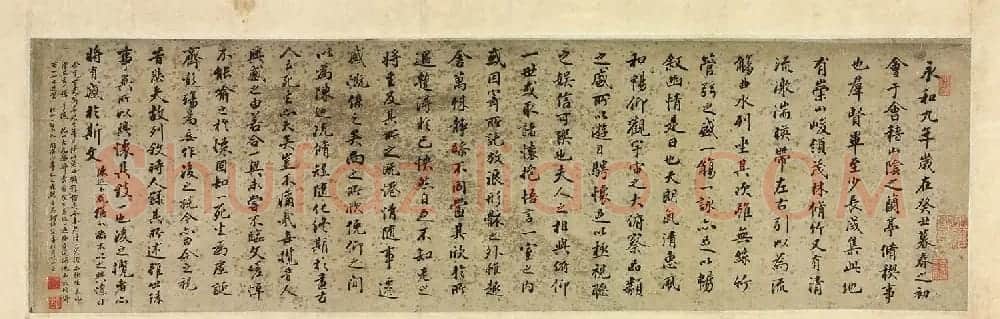 永和九年歲在癸丑暮春之初
會于會稽山陰之蘭亭脩禊事
也羣賢畢至少長咸集此地
有崇山峻領茂林脩竹又有清
流激湍暎帶左右引以為流
觴曲水列坐其次雖無絲竹
管弦之盛一觴一詠亦足以暢
敘幽情是日也天朗氣清惠風
和暢仰觀宇宙之大俯察品類
之盛所以遊目騁懷足以極視聽
之娛信可樂也夫人之相與俯仰
一世或取諸懷抱悟言一室之內
或因寄所託放浪形骸之外雖趣
舍萬殊靜躁不同當其欣於所
遇暫得於己怏然自足不知老之
將至及其所之既倦情隨事遷
感慨係之矣向之所欣俛仰之間
以為陳迹況脩短隨化終期於盡古
人云死生亦大矣豈不痛哉每攬昔人
興感之由若合一契未嘗不臨文嗟悼
不能喻之於懷固知一死生為虛誕
齊彭殤為妄作後之視今亦由今之視
昔悲夫故列敘時人錄其所述雖世殊
事異所以興懷其致一也後之攬者亦
將有感於斯文
Shufaziliao.COM